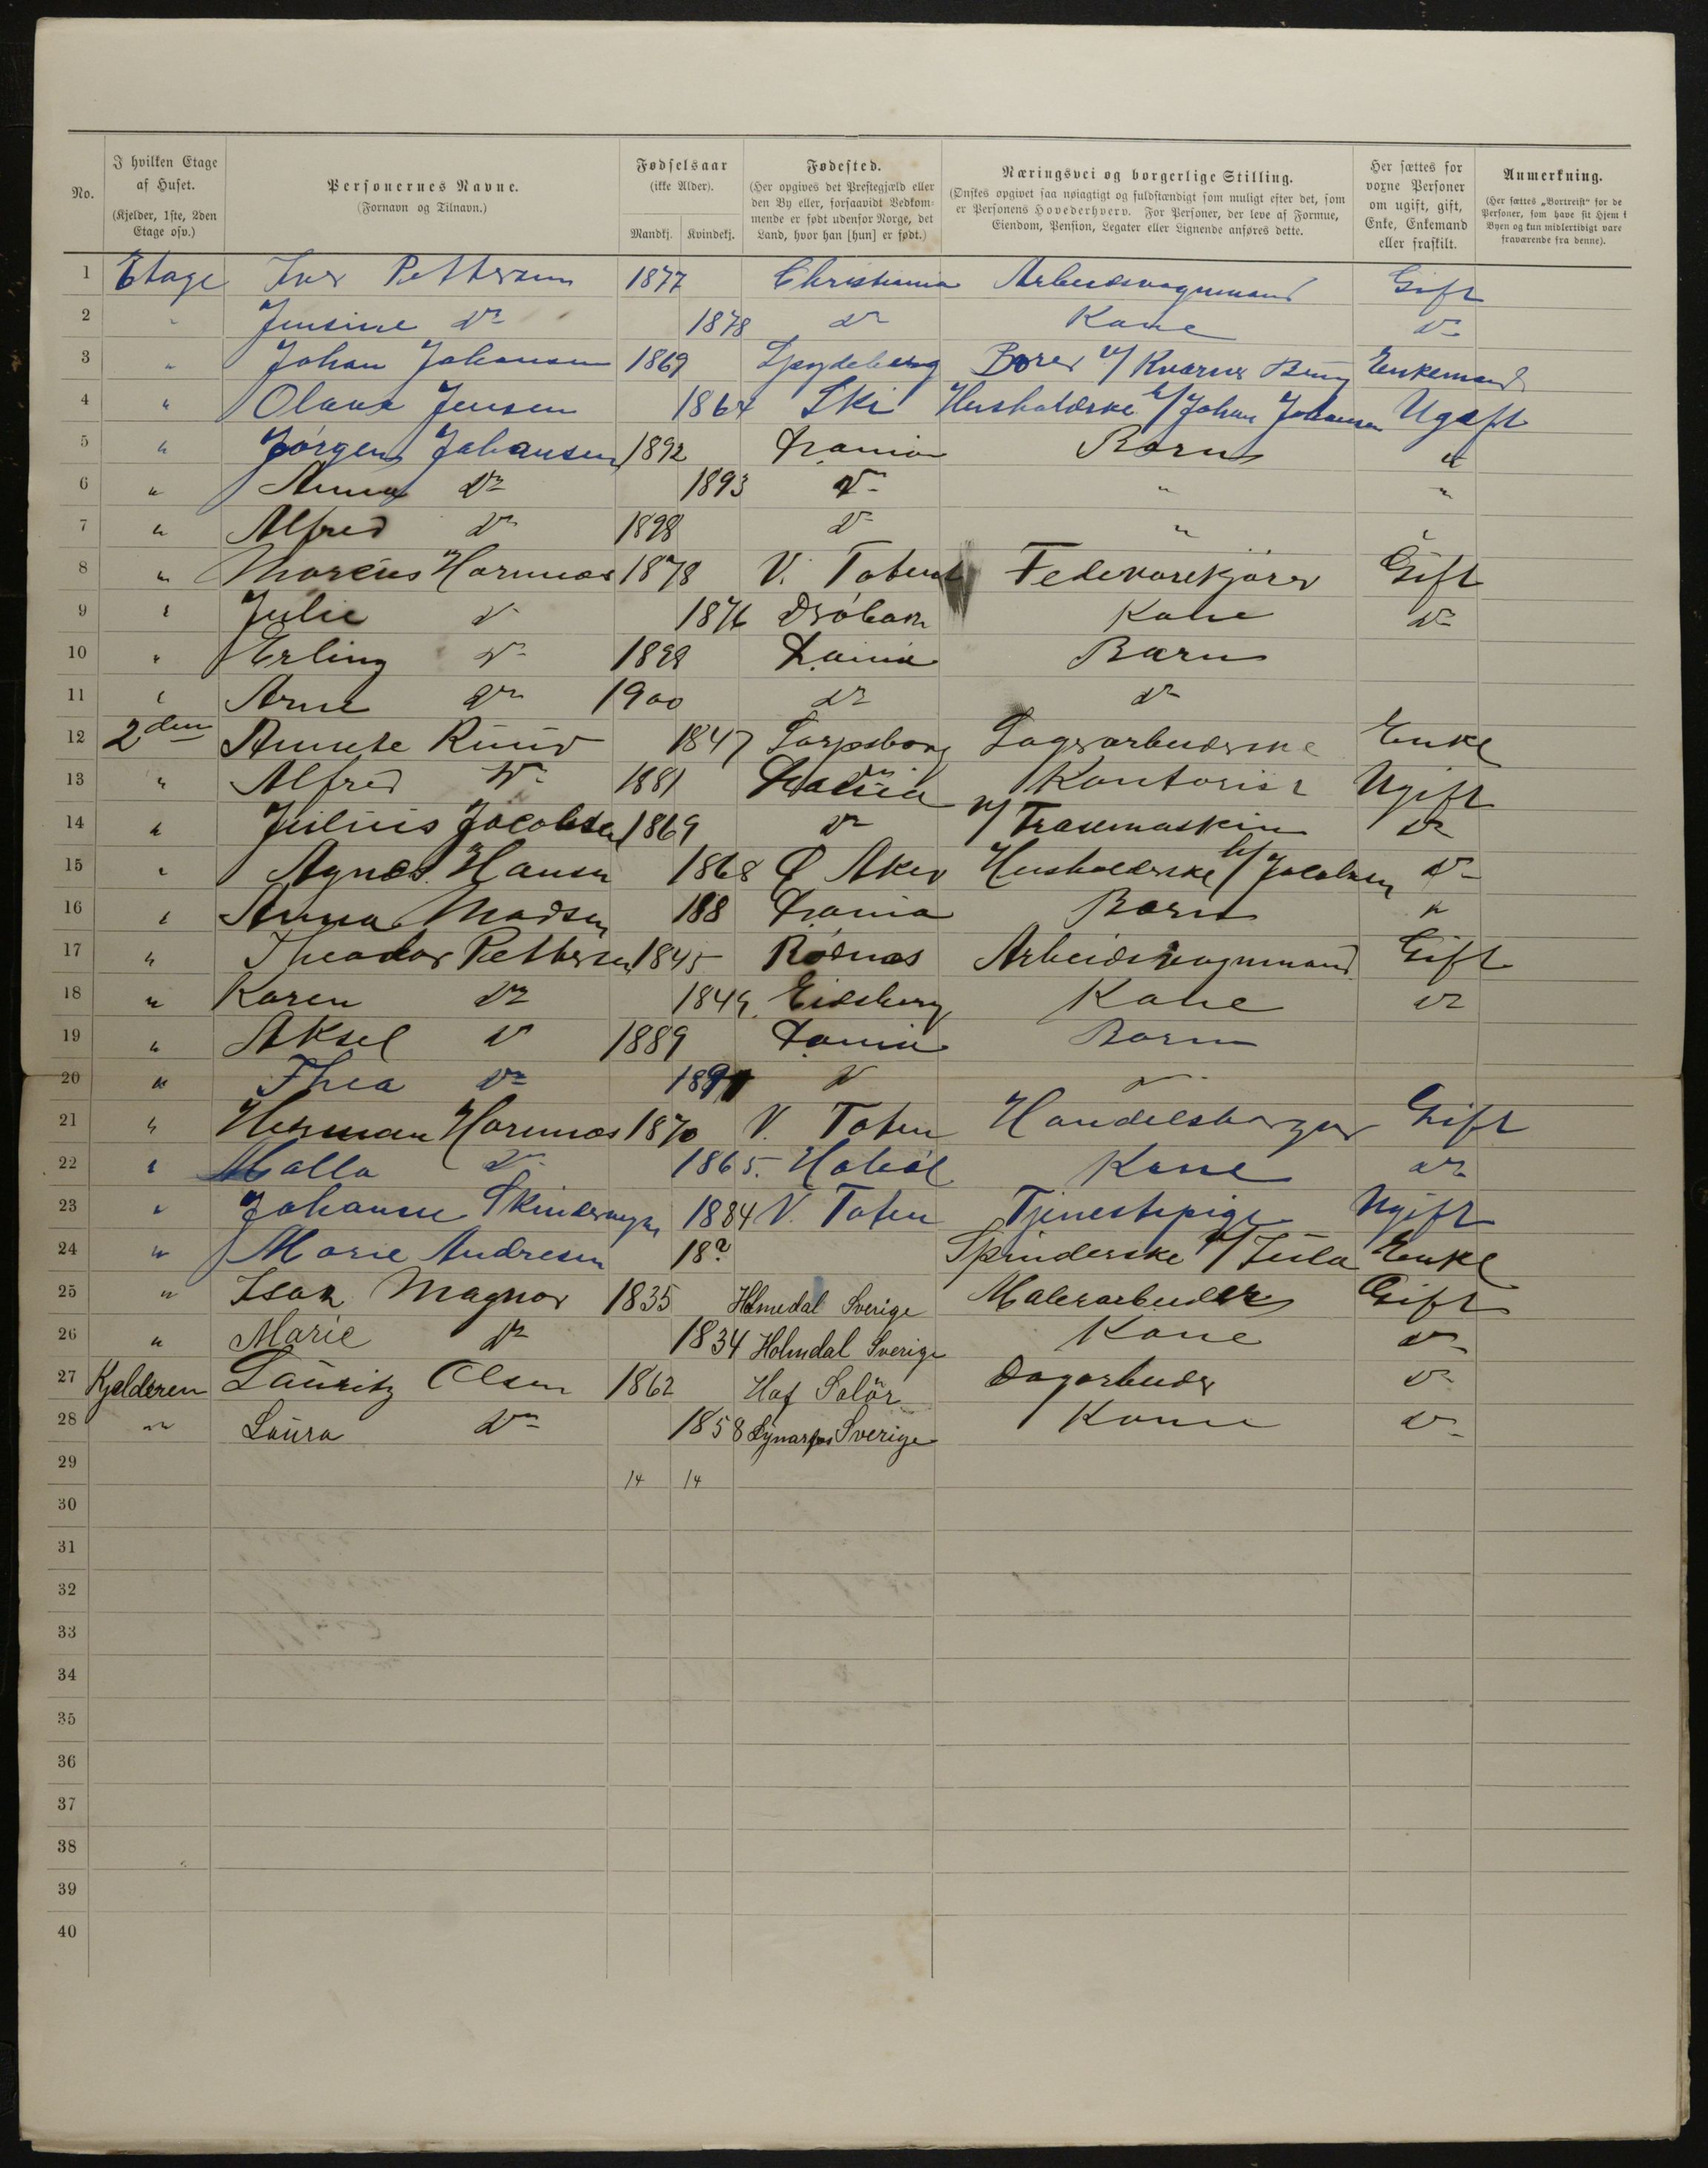 No. I hvilken Etage af Huset. (Kjelder, 1ste, 2den Etage osv.) Personernes Navne. (Fornavn og Tilnavn.) Fødselsaar (ikke Alder). Mandkj. Kvindekj. Fødested. (Her opgives det Prestegjæld eller den By eller, forsaavidt Vedkommende er født udenfor Norge, det Land, hvor han [hun] er født.) Næringsvei og borgerlige Stilling. (Ønskes opgivet saa nøiagtigt og fuldstændigt som muligt efter det, som er Personens Hovederhverv. For Personer, der leve af Formue, Eiendom, Pension, Legater eller Lignende anføres dette. Her sættes for voxne Personer om ugift, gift, Enke, Enkemand eller fraskilt. Anmerkning. (Her sættes „Bortreist" for de Personer, som have sit Hjem i Byen og kun midlertidigt vare fraværende fra denne).
1 Etage Iver Pettersen 1877 Christiania Arbeidsvognmand Gift
2 " Jensine Do 1878 Do Kone Do
3 " Johan Johansen 1869 Spydeberg Borer v/ Kværner Brug Enkemand
4 " Olava Jensen 1864 Ski Husholdske h/ Johan Johansen Ugift
5 " Jørgen Johansen 1892 Kr.ania Barn "
6 " Anna Do 1893 Do " "
7 " Alfred Do 1898 Do " "
8 " Marcus Harmnes 1878 V. Toten Fedevarekjører Gift
9 " Julie Do 1876 Drøbak Kone Do
10 " Erling Do 1898 Kr.ania Barn
11 " Arne Do 1900 Do Do
12 2den Annete Ruud 1847 Sarpsborg Dagarbeiderske Enke
13 " Alfred Do 1881 Kr.ania Kontorist Ugift
14 " Julius Jacobsen 1869 Do v/ Træsemaskin Do
15 " Agnes Hansen 1868 Ø Aker Husholderske h/ Jacobsen Do
16 " Anna Madsen 188 Kr.ania Barn "
17 " Theodor Pettersen 1845 Rødnæs Arbeidsvognmand Gift
18 " Karen Do 1849 Eidsberg Kone Do
19 " Aksel Do 1889 Kr.ania Barn
20 " Thea Do 1891 Do Do
21 " Herman Harmnes 1870 V. Toten Handelsborger Gift
22 " Malla Do 1865. Hobøl Kone Do
23 " Johanne 1884 V. Toten Tjenestepige Ugift
24 " Marie Andresen 18? Spinderske v/ Jula Enke
25 " Isak Magnor 1835 Holmedal Sverige Malerarbeider Gift
26 " Marie Do 1834 Holmdal Sverige Kone Do
27 Kjelderen Lauritz Olsen 1862 Hof Solør Dagarbeider Do
28 " Laura Do 1858 Sverige Kone Do
29 14 14
30
31
32
33
34
35
36
37
38
39
40